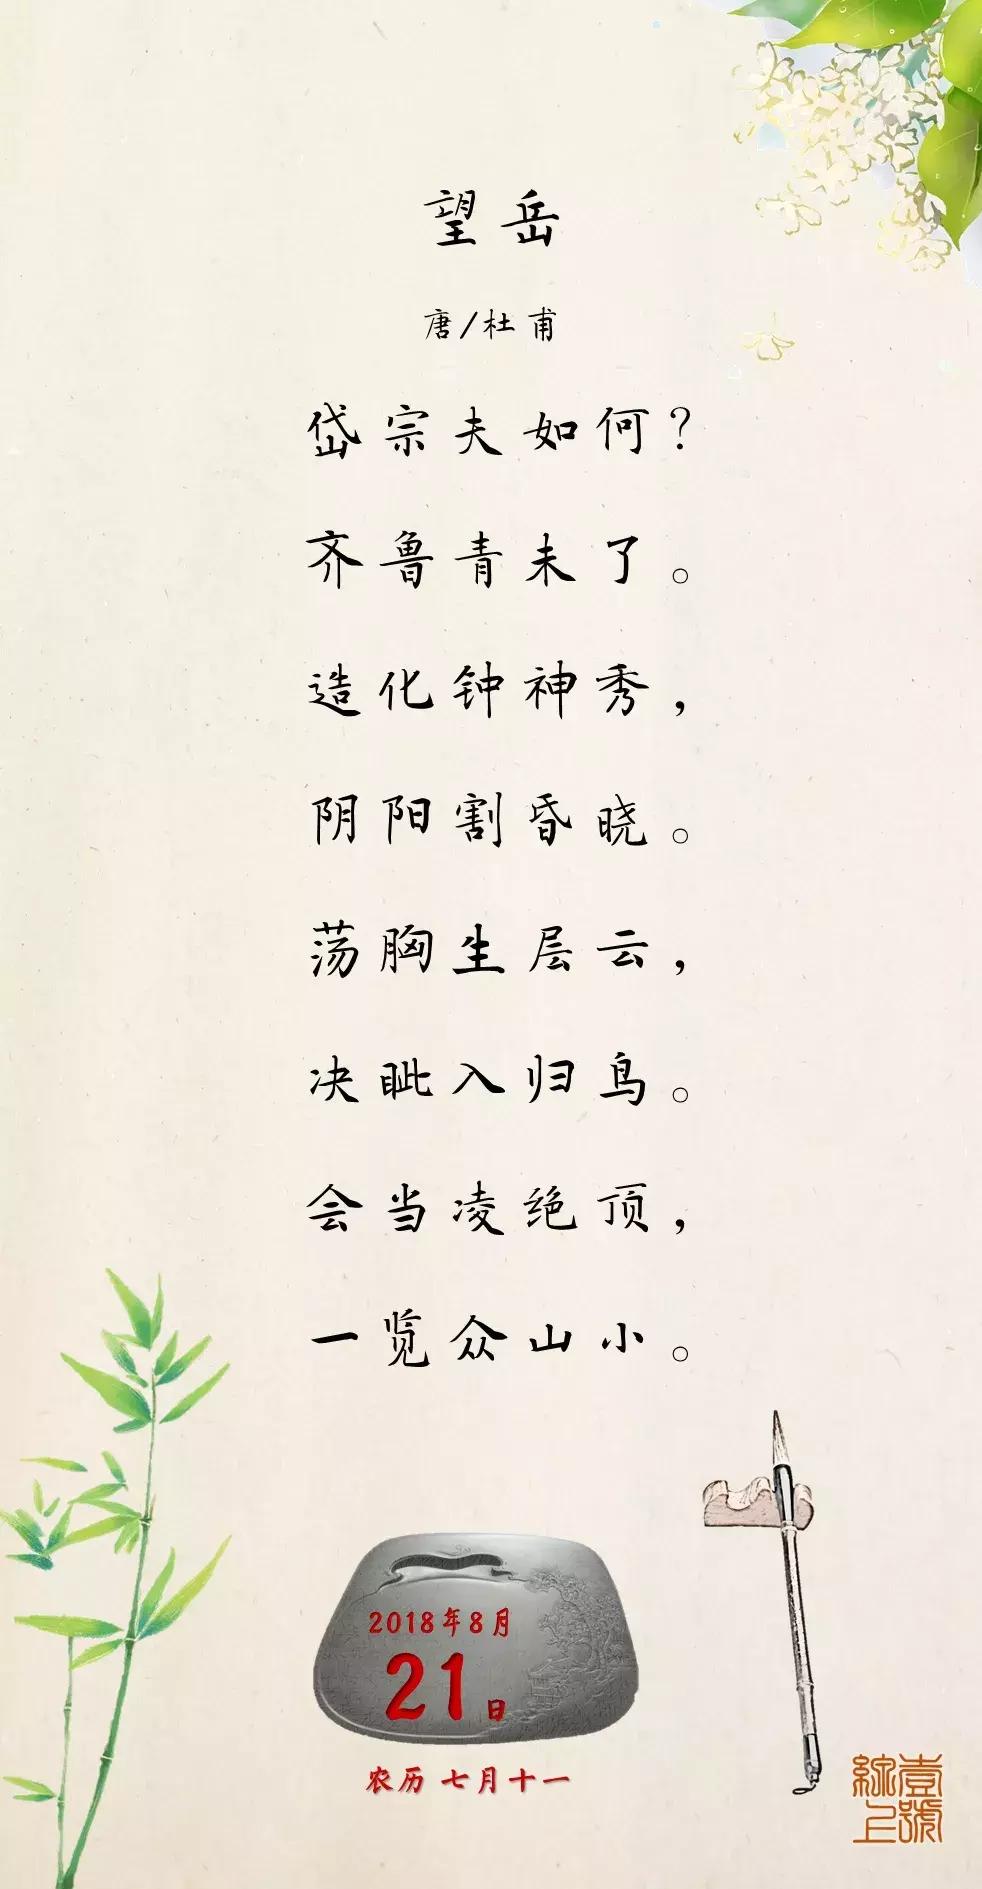 望岳
唐/杜甫
岱宗夫如何？
齐鲁青未了。
造化钟神秀，
阴阳割昏晓。
荡胸生层云，
决眦入归鸟。
会当凌绝顶，
一览众山小。
2018年8月
21日
农历 七月十一